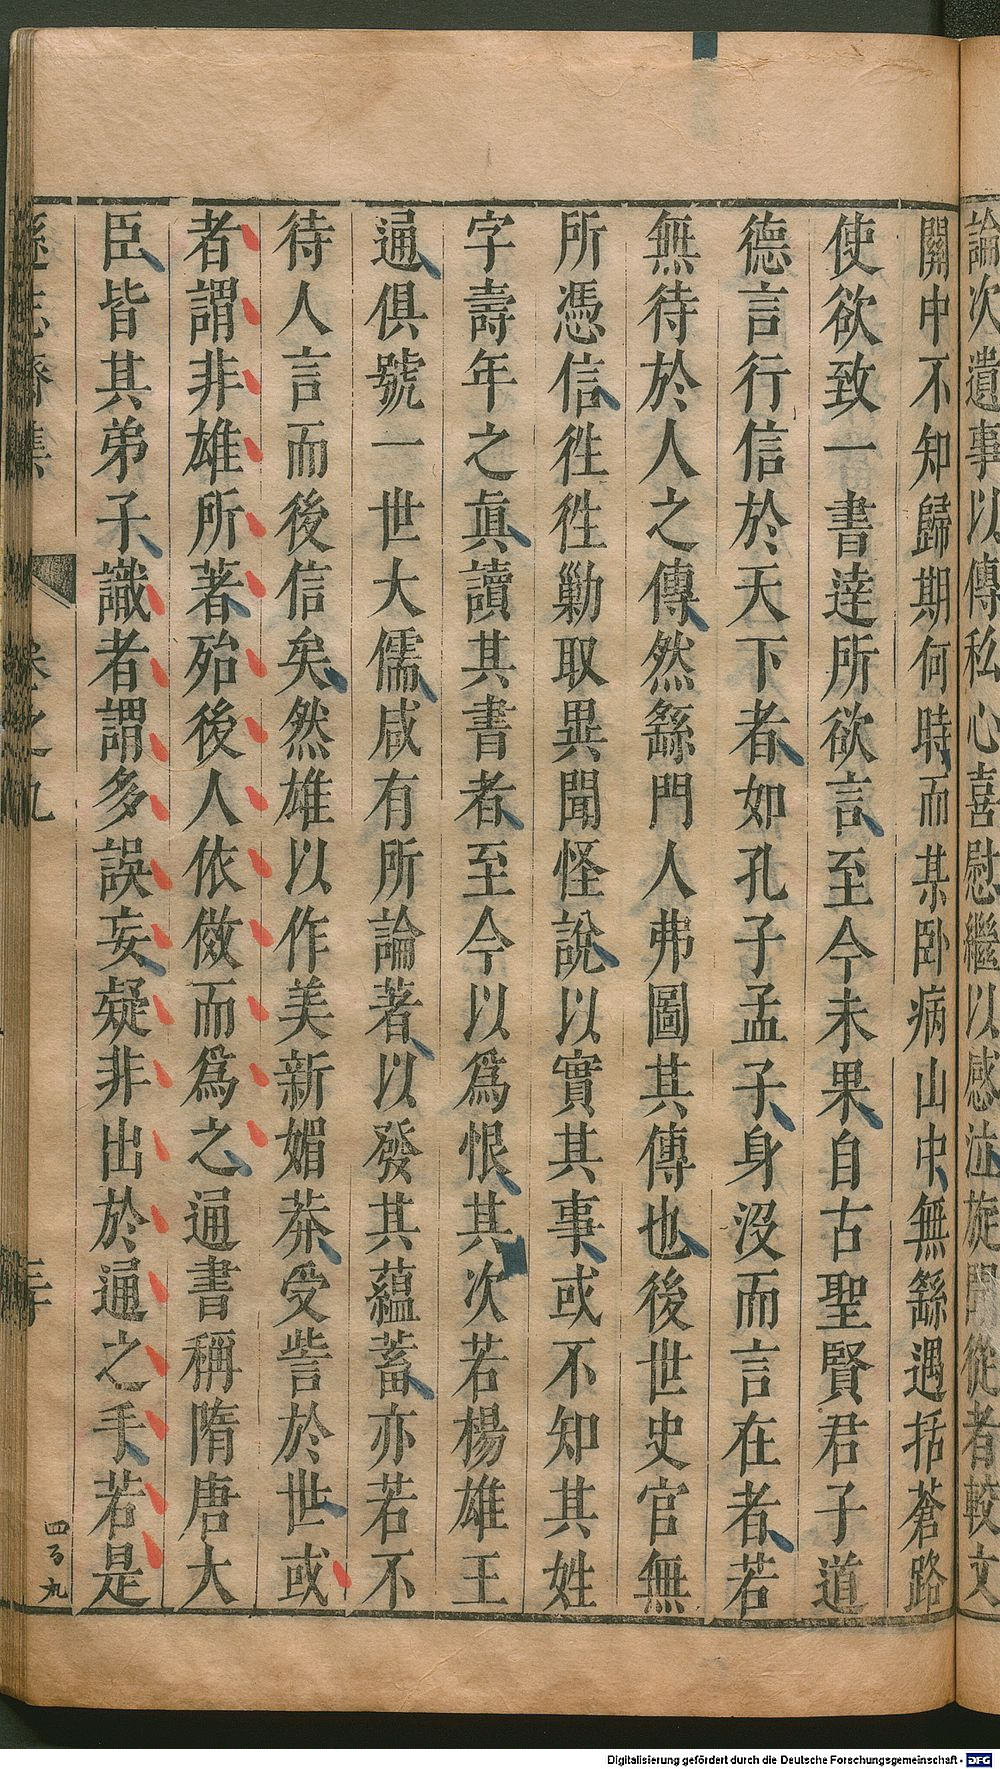 論次遺事以傳私心喜慰繼以感泣旋聞從者較文
關中不知歸期何時而某卧病山中無繇遇括蒼路
使欲致一書達所欲言至今未果自古聖賢君子道
德言行信於天下者如孔子孟子身沒而言在者若
無待於人之傳然繇門人弗圖其傳也後世史官無
所憑信徃徃勦取異聞怪說以實其事或不知其姓
字壽年之眞讀其書者至今以爲恨其次若楊雄王
通俱號一世大儒咸有所論著以發其蘊蓄亦若不
待人言而後信矣然雄以作美新媚莽受訾於世或
者謂非雄所著殆後人依倣而爲之通書稱隋唐大
臣皆其弟子識者謂多誤妄疑非出於通之手若是
遜志齋集
卷之九
四百九
Digitalisierung gefördert durch die Deutsche Forschungsgemeinschaft - DFG